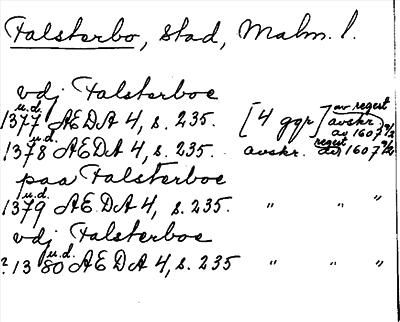 Falsterbo, stad, Malm. l.
vdj Falsterboe
u.d.
1377 AEDA 4, s. 235. [4 ggr] av regest avskr. av 1607 9/2
u.d.
1378 AEDA 4, s. 235. avskr. av regest 1607 9/2
paa Falsterboe
u.d.
1379 AEDA 4, s. 235. " " "
vdj Falsterboe
u.d.
?1380 AEDA 4, s. 235 " " "